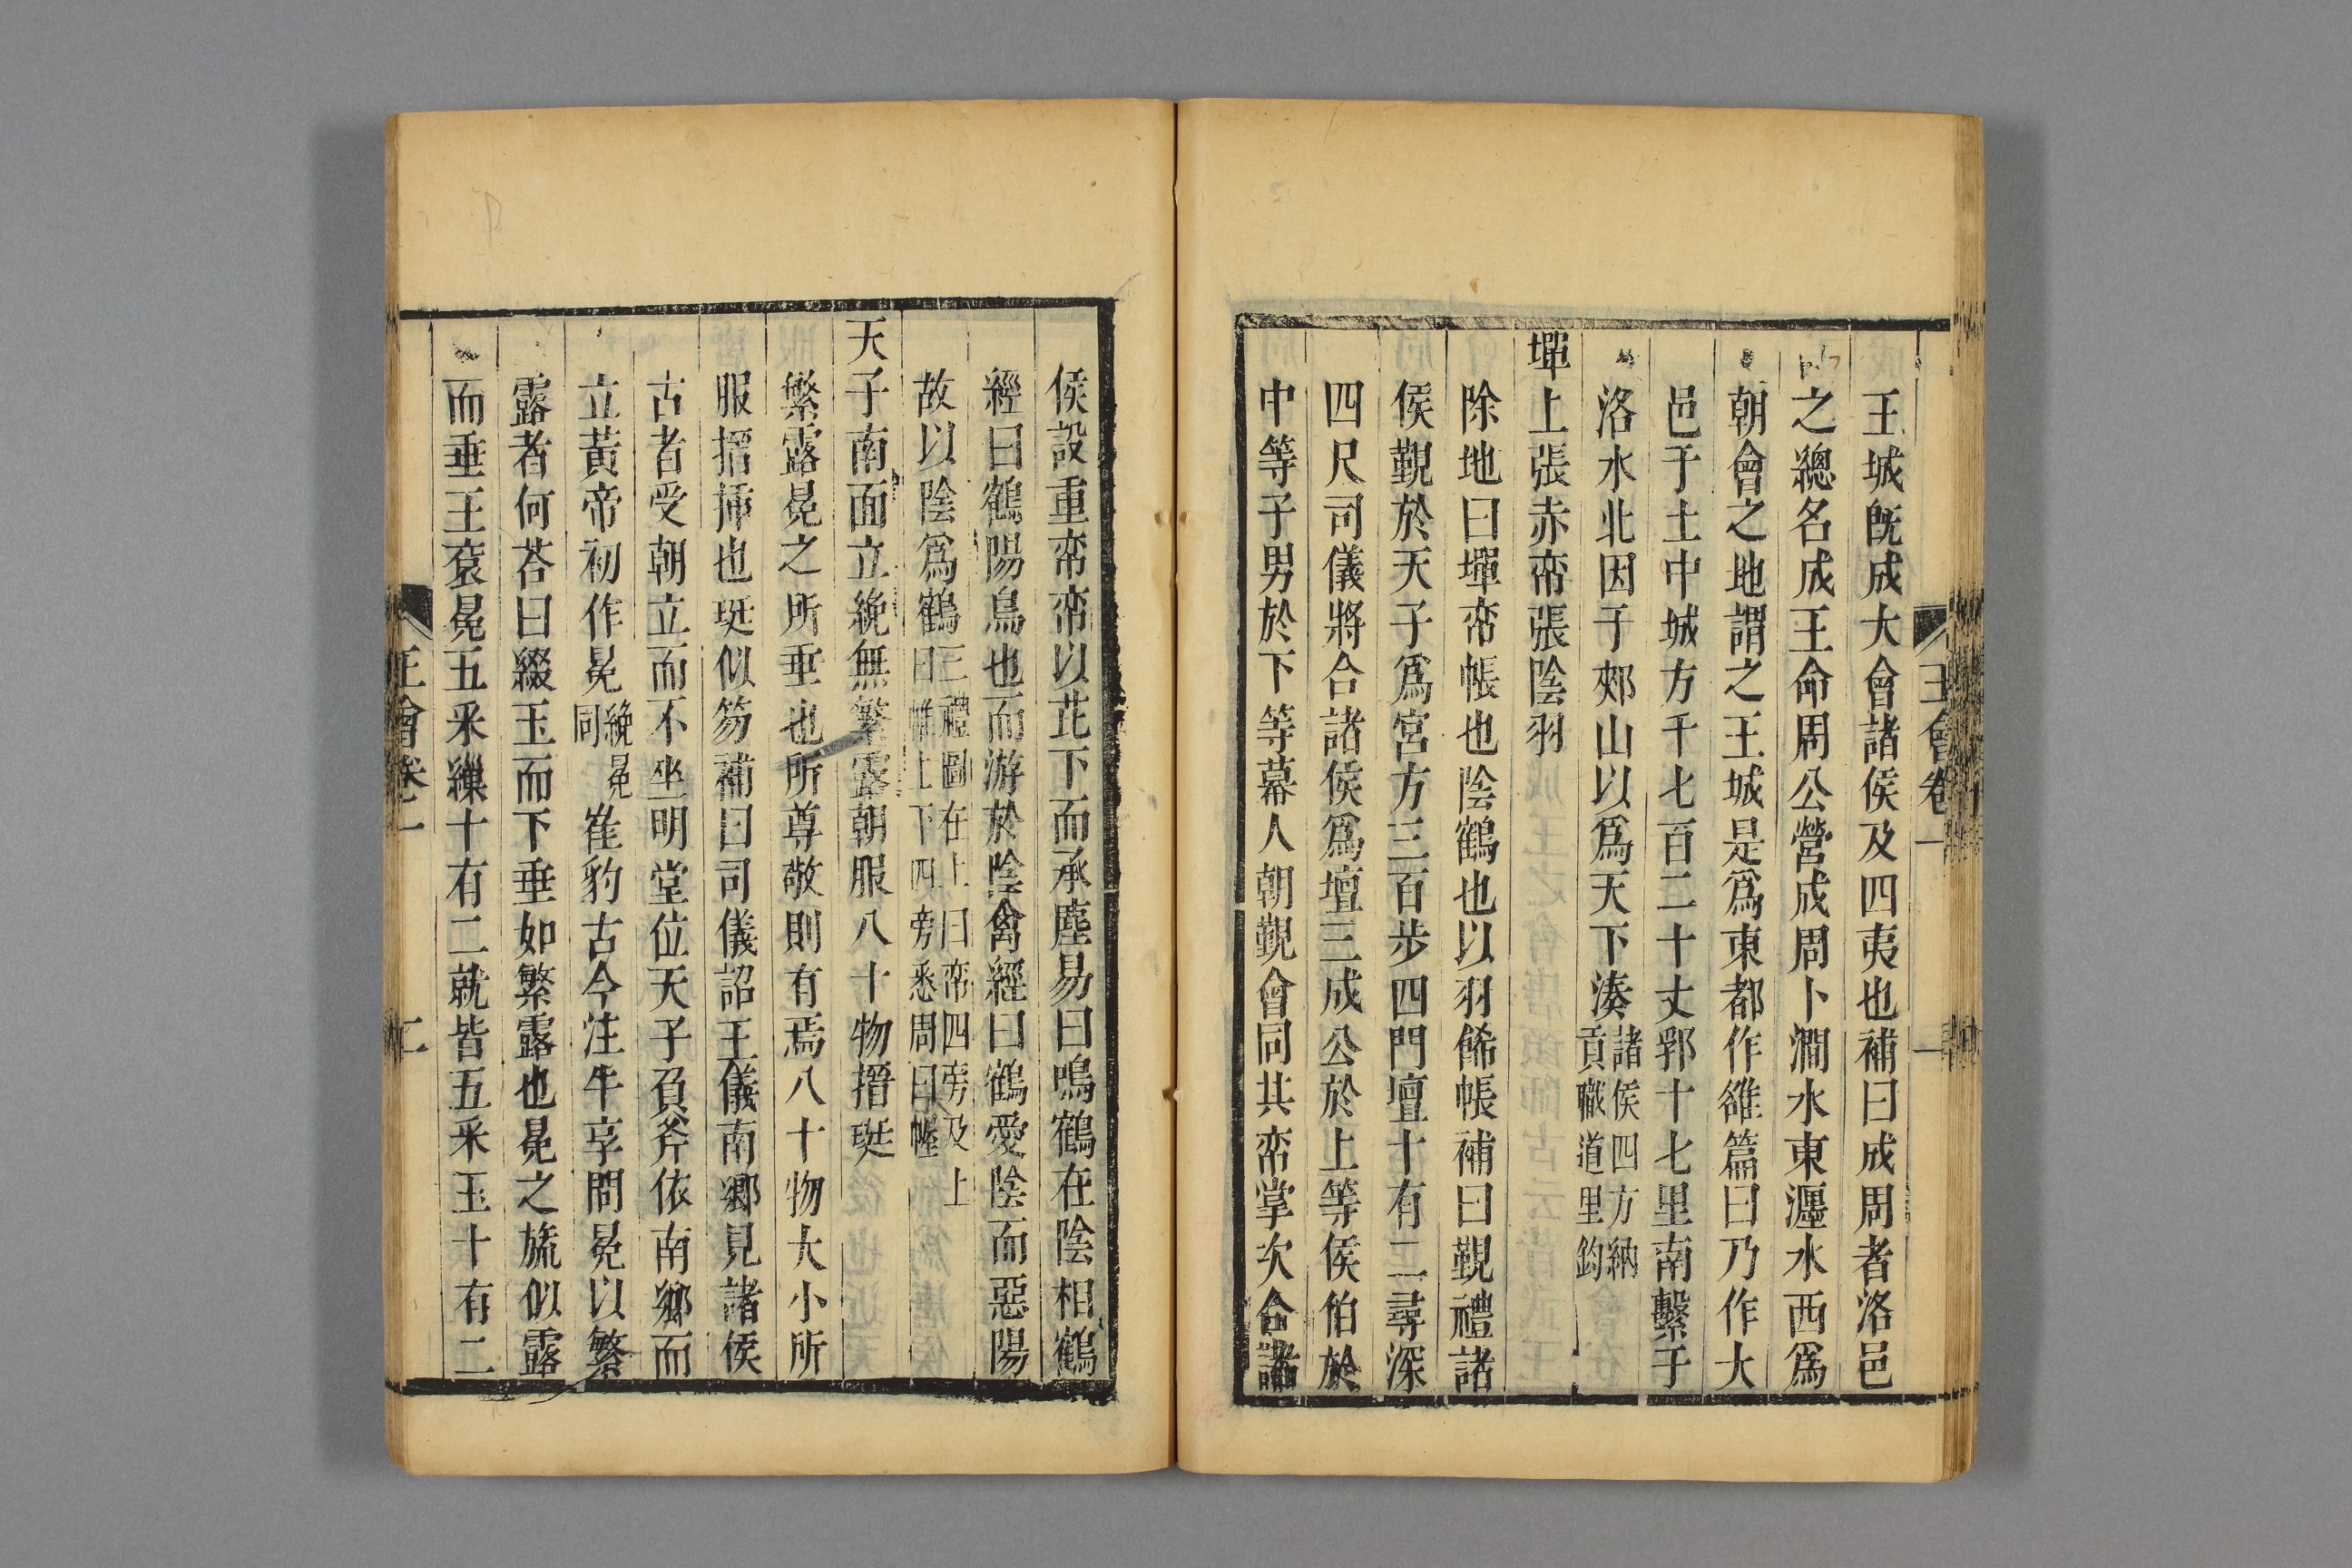 王會卷一
一
王城既成大會諸侯及四夷也補曰成周者洛邑
之總名成王命周公營成周卜澗水東瀍水西爲
朝會之地謂之王城是爲東都作雒篇曰乃作大
邑于土中城方千七百二十丈郛十七里南繫于
洛水北因于郟山以爲天下湊諸侯四方納貢職道里鈞
墠上張赤帟張陰羽
除地曰墠帟帳也陰鶴也以羽飾帳補曰覲禮諸
侯覲於天子爲宮方三百步四門壇十有二尋深
四尺司儀將合諸侯爲壇三成公於上等侯伯於
中等子男於下等幕人朝覲會同共帟掌次合諸
侯設重帟帟以芘下而承塵易曰鳴鶴在陰相鶴
經曰鶴陽鳥也而游於陰禽經曰鶴愛陰而惡陽
故以陰爲鶴三禮圖在上曰帟四旁及上曰帷上下四旁悉周曰幄
天子南面立絻無繁露朝服八十物搢珽
繁露冕之所垂也所尊敬則有焉八十物大小所
服搢揷也珽似笏補曰司儀詔王儀南鄉見諸侯
古者受朝立而不坐明堂位天子負斧依南鄉而
立黃帝初作冕絻冕同崔豹古今注牛享問冕以繁
露者何荅曰綴玉而下垂如繁露也冕之旒似露
而垂王袞冕五采繅十有二就皆五采玉十有二
王會卷一
二